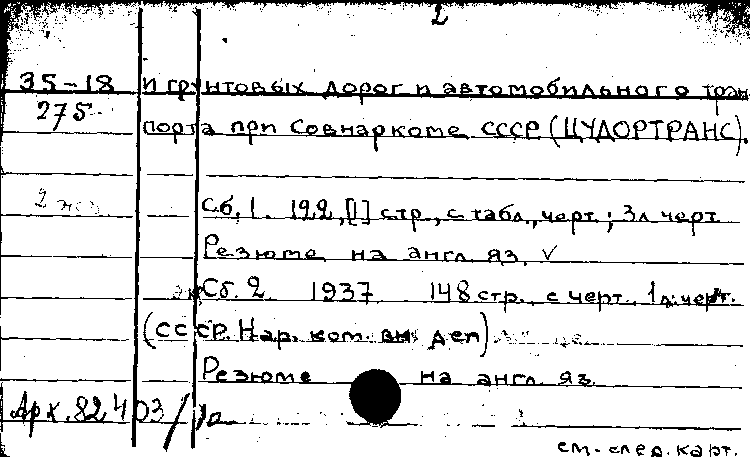 2
35-18 и грунтовых дорог и автомобильного тран
275 порта при Совнаркоме СССР (ЦУДОРТРАНС).
2 экз
Сб. 1. 122, [1] стр., с табл., черт.; 3л черт.
Резюме на англ. яз. √
Сб. 2. 1937 148 стр., с черт., 1 л. черт.
(СССР. Нар. ком. вн. дел)
Резюме на англ. яз.
Арх. 82403/
см. след. карт.